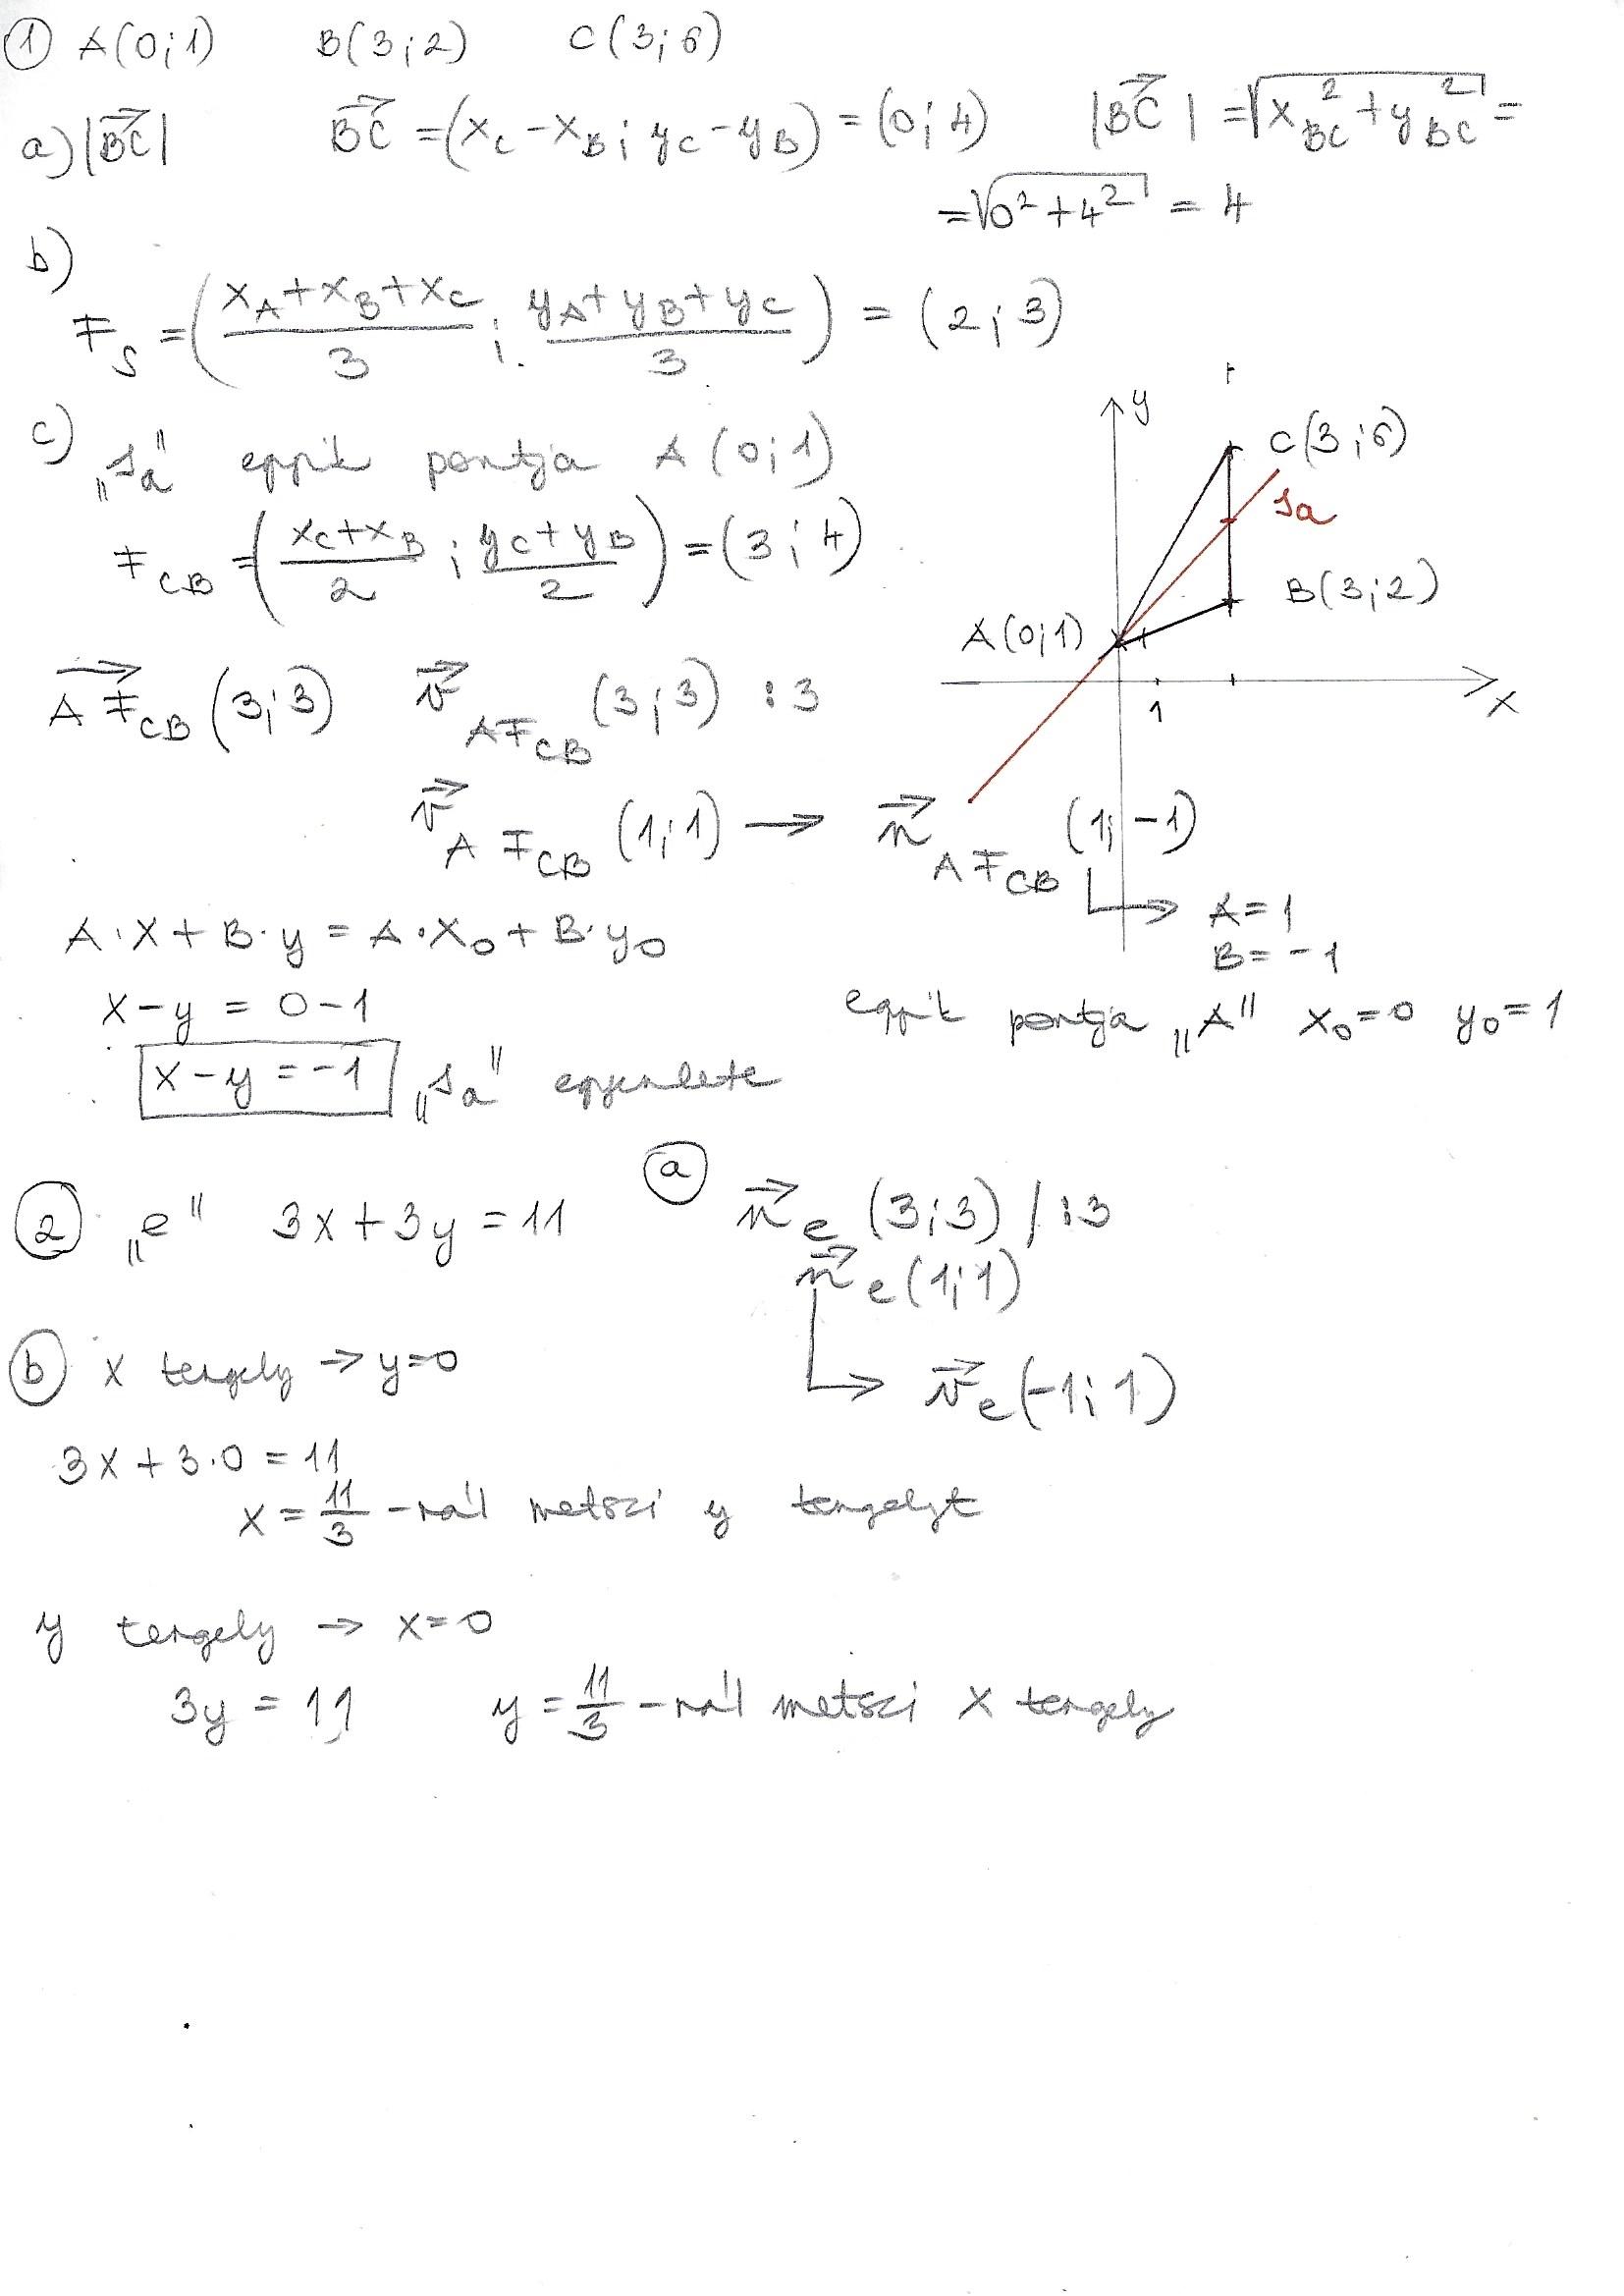 ① A(0;1) B(3;2) C(3;6)
a) |BC| BC = (x_C - x_B; y_C - y_B) = (0; 4) |BC| = √(x_BC² + y_BC²) =
= √(0² + 4²) = 4
b)
F_S = ((x_A + x_B + x_C)/3 ; (y_A + y_B + y_C)/3) = (2; 3)
c) „s_a” egyik pontja A(0;1)
F_CB = ((x_C + x_B)/2 ; (y_C + y_B)/2) = (3; 4)
y
C(3;6)
s_a
B(3;2)
A(0;1)
1
x
AF_CB (3;3) v_AF_CB (3;3) :3
v_AF_CB (1;1) → n_AF_CB (1;-1)
A=1
B=-1
A·x + B·y = A·x₀ + B·y₀
x - y = 0 - 1
egyik pontja „A” x₀=0 y₀=1
x - y = -1 „s_a” egyenlete
② „e” 3x + 3y = 11
ⓐ n_e (3;3) /:3
n_e (1;1)
v_e (-1;1)
ⓑ x tengely → y=0
3x + 3·0 = 11
x = 11/3 -nál metszi y tengelyt
y tengely → x=0
3y = 11 y = 11/3 -nál metszi x tengely